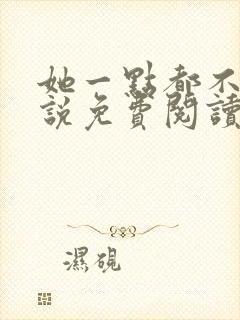 她一點都不
說免費閱讀
濕硯